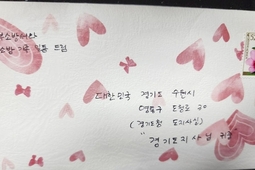 소방서와
소방 가족 일동 드림
대한민국 경기도 수원시
영통구 도청로 30
(경기도청 도지사실)
"경기도지사님 귀하